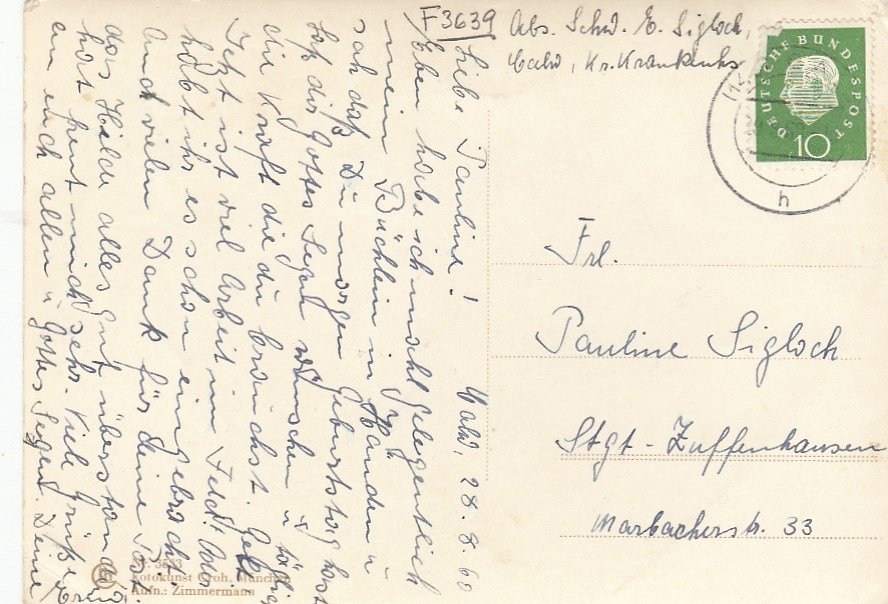 F3639
Abs. Schw. E. Sigloch,
Calw, Kr. Krankenhs
DEUTSCHE BUNDESPOST
10
h
Calw, 28.8.60
Liebe Pauline!
Eben habe ich mahl gelegentlich
mein Büchlein in Händen u
sah daß Du morgen Geburtstag hast
laß dir Gottes Segen wünschen u täglich
die Kraft die du brauchst. Gelt
Jetzt ist viel Arbeit im Feld. Oder
habt ihr es schon eingebracht.
Auch vielen Dank für deine Post.
das Hilde alles gut überstanden
hat freut mich sehr. Viele Grüße
an euch allen u Gottes Segen. Deine
Frl.
Pauline Sigloch
Stgt-Zuffenhausen
Marbacherstr. 33
3833
Fotokunst Groh, München
Aufn.: Zimmermann